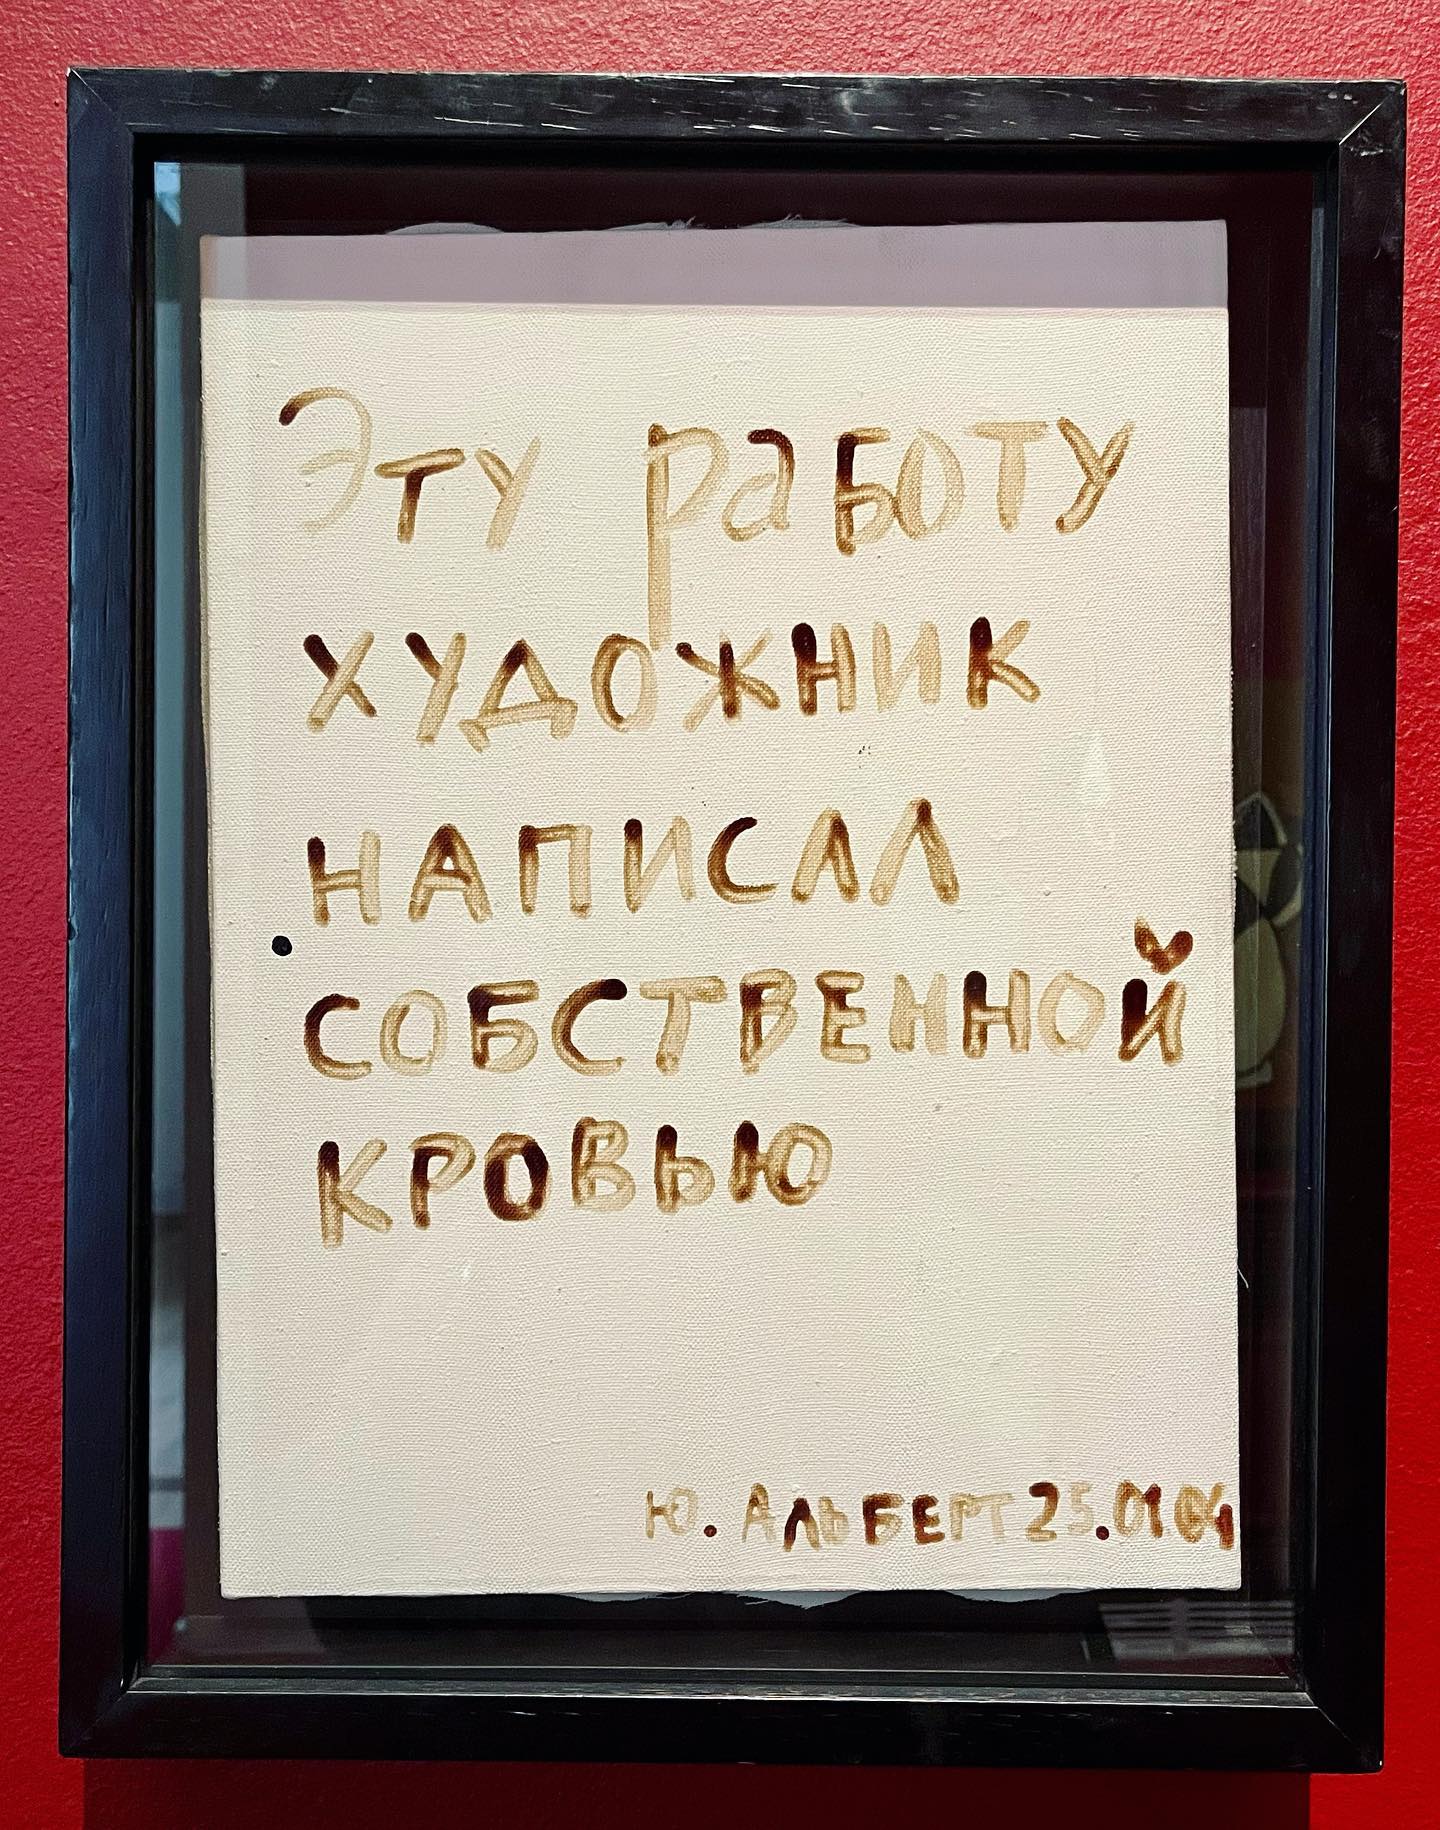 Эту работу
художник
написал
собственной
кровью
Ю. Альберт 25.01.04